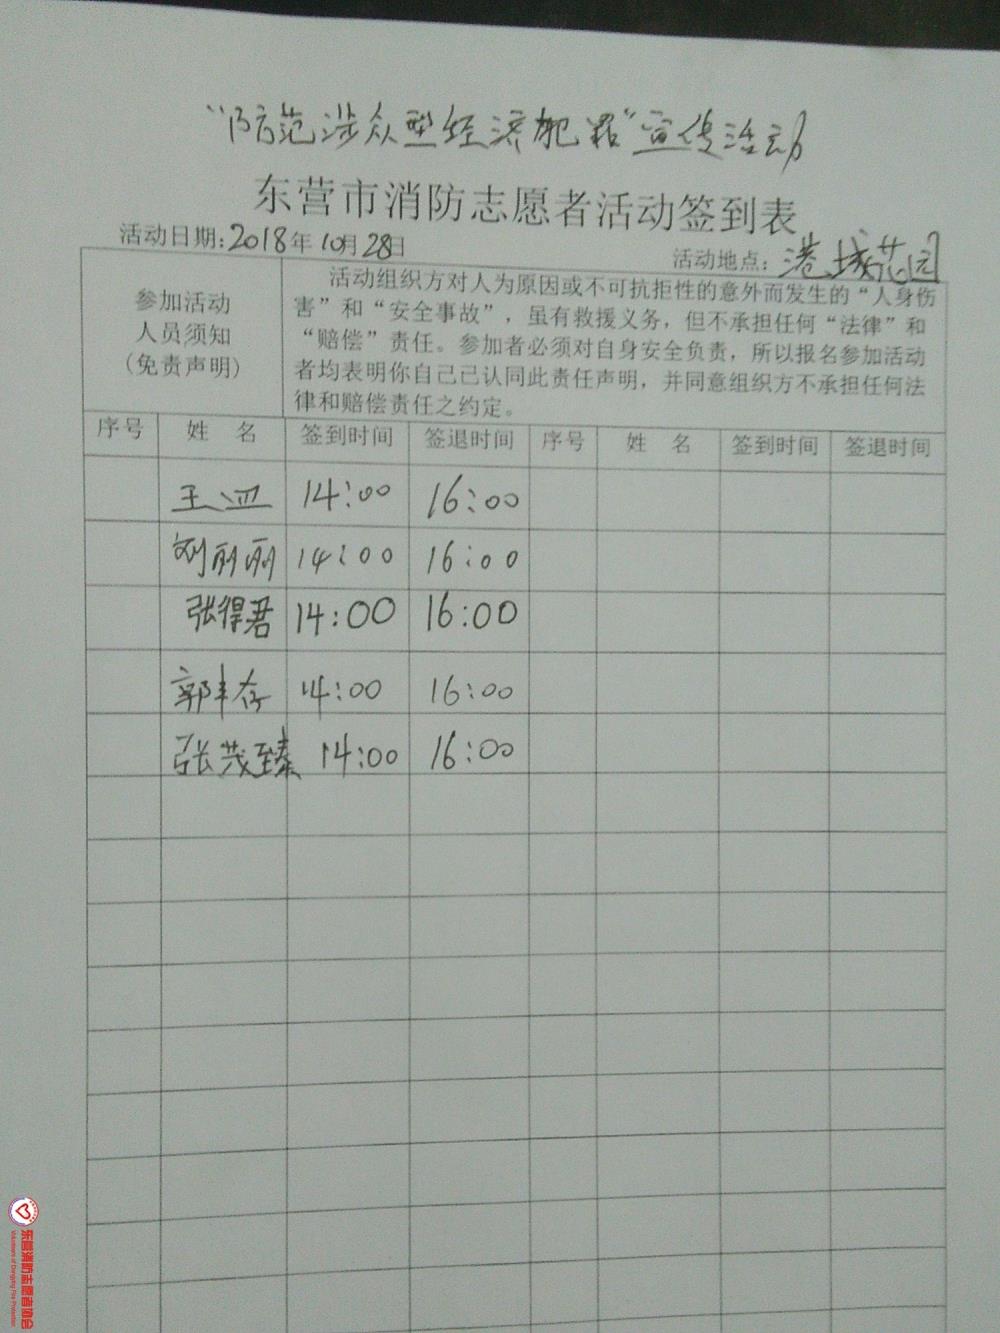 “防范涉众型经济犯罪”宣传活动
东营市消防志愿者活动签到表
活动日期:2018年10月28日
活动地点:港城花园
参加活动
人员须知
(免责声明)
活动组织方对人为原因或不可抗拒性的意外而发生的“人身伤
害”和“安全事故”，虽有救援义务，但不承担任何“法律”和
“赔偿”责任。参加者必须对自身安全负责，所以报名参加活动
者均表明你自己已认同此责任声明，并同意组织方不承担任何法
律和赔偿责任之约定。
序号 姓 名 签到时间 签退时间 序号 姓 名 签到时间 签退时间
王 14:00 16:00
刘丽丽 14:00 16:00
张得君 14:00 16:00
郭丰存 14:00 16:00
张茂臻 14:00 16:00
东营消防志愿者协会
Volunteers of Dongying Fire Protection